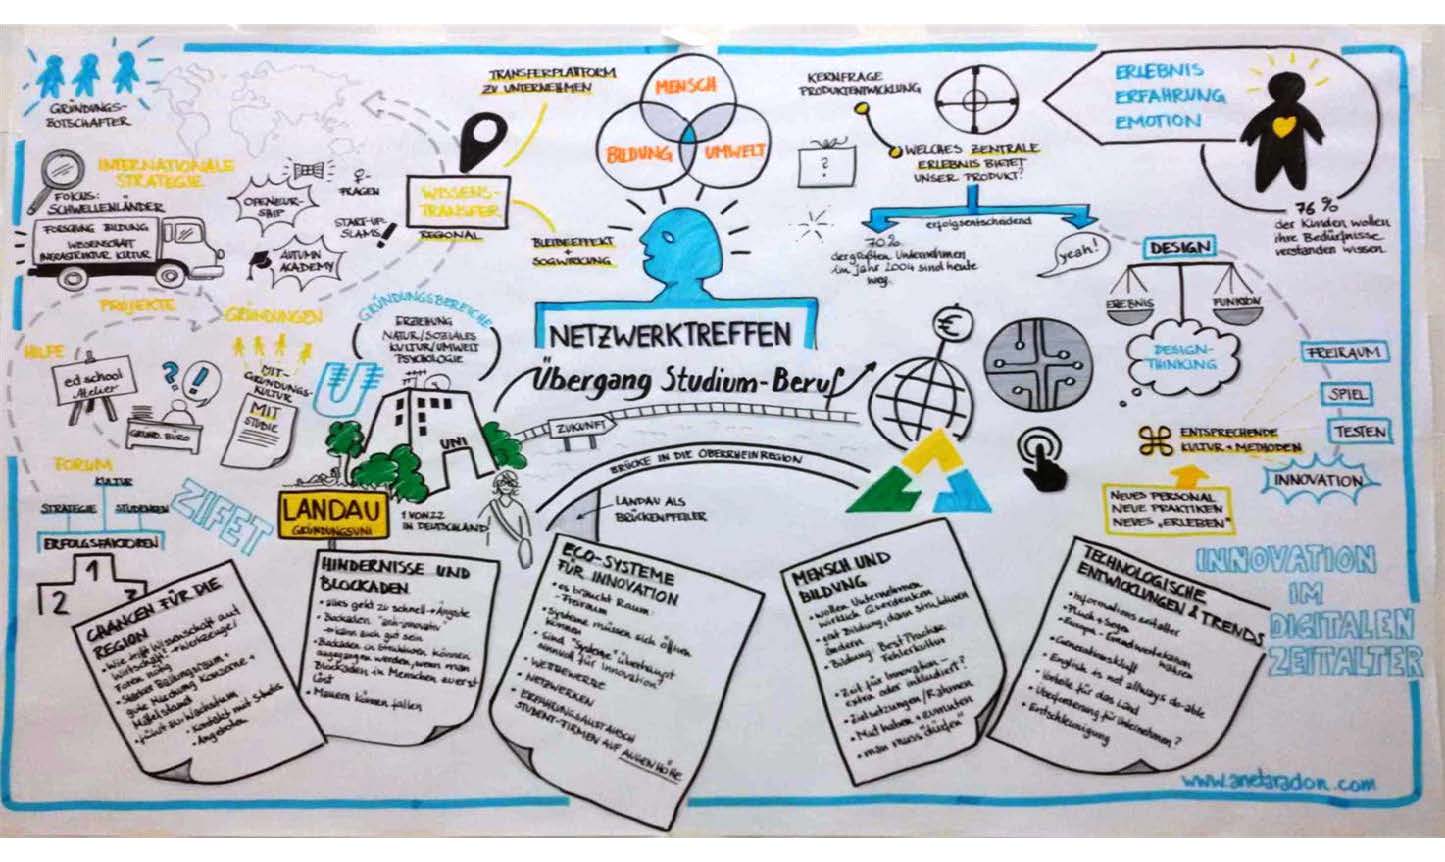 GRÜNDUNGS-
BOTSCHAFTER
INTERNATIONALE
STRATEGIE
FOKUS:
SCHWELLENLÄNDER
FORSCHUNG BILDUNG
WISSENSCHAFT
INFRASTRUKTUR KULTUR
OPENEUR-
SHIP
♀-
FRAGEN
START-UP-
SLAMS
!
AUTUMN
ACADEMY
TRANSFERPLATTFORM
ZU UNTERNEHMEN
WISSENS-
TRANSFER
REGIONAL
BLEIBEEFFEKT
+
SOGWIRKUNG
MENSCH
BILDUNG
UMWELT
NETZWERKTREFFEN
Übergang Studium-Beruf
ZUKUNFT
KERNFRAGE
PRODUKTENTWICKLUNG
?
WELCHES ZENTRALE
ERLEBNIS BIETET
UNSER PRODUKT?
erfolgsentscheidend
70%
der größten Unternehmen
im Jahr 2004 sind heute
weg.
yeah!
ERLEBNIS
ERFAHRUNG
EMOTION
76%
der Kunden wollen
ihre Bedürfnisse
verstanden wissen.
DESIGN
ERLEBNIS
FUNKTION
DESIGN-
THINKING
FREIRAUM
SPIEL
TESTEN
ENTSPRECHENDE
KULTUR + METHODEN
INNOVATION
NEUES PERSONAL
NEUE PRAKTIKEN
NEUES „ERLEBEN"
INNOVATION
IM
DIGITALEN
ZEITALTER
PROJEKTE
GRÜNDUNGEN
HILFE
ed.school
Atelier
?!
GRÜND. BÜRO
MIT-
GRÜNDUNGS-
KULTUR
MIT
STUDIE
GRÜNDUNGSBEREICHE
ERZIEHUNG
NATUR/SOZIALES
KULTUR/UMWELT
PSYCHOLOGIE
U
UNI
LANDAU
GRÜNDUNGSUNI
1 VON 22
IN DEUTSCHLAND
€
BRÜCKE IN DIE OBERRHEINREGION
LANDAU ALS
BRÜCKENPFEILER
FORUM
KULTUR
STRATEGIE
STUDENTEN
ERFOLGSFAKTOREN
1
2
3
ZIFET
CHANCEN FÜR DIE
REGION
• Wie trifft Wissenschaft auf
Wirtschaft? → Werkzeuge!
nötig
• Starker Bildungsraum +
gute Mischung Konzerne +
Mittelstand
• führt zu Wachstum
• Kontakt mit Studis
• Angeboten
HINDERNISSE UND
BLOCKADEN
• alles geht zu schnell → Ängste
• Blockaden
→ kann auch gut sein
• Blockaden in Strukturen können
angegangen werden, wenn man
Blockaden in Menschen zuerst
löst
• Mauern können fallen
ECO-SYSTEME
FÜR INNOVATION
• es braucht Raum
- Freiraum
• Systeme müssen sich öffnen
können
• Sind "Systeme" überhaupt
sinnvoll für Innovation?
• WETTBEWERBE
• NETZWERKEN
• ERFAHRUNGSAUSTAUSCH
STUDENT-FIRMEN AUF AUGENHÖHE
MENSCH UND
BILDUNG
• wollen Unternehmen
wirklich Querdenken
• gut Bildung, dann Strukturen
ändern
• Bildung: Best Practise
Fehlerkultur
• Zeit für Innovation -
extra oder inkludiert?
• Zielsetzungen/Rahmen
• Mut haben + zumuten
• man muss "dürfen"
TECHNOLOGISCHE
ENTWICKLUNGEN & TRENDS
• Informationszeitalter
• Fluch + Segen
wahren
• Generationskluft
• English is not allways do-able
• Vorteile für das Land
• Überforderung für Unternehmen?
• Entschleunigung
www.anetaradon.com